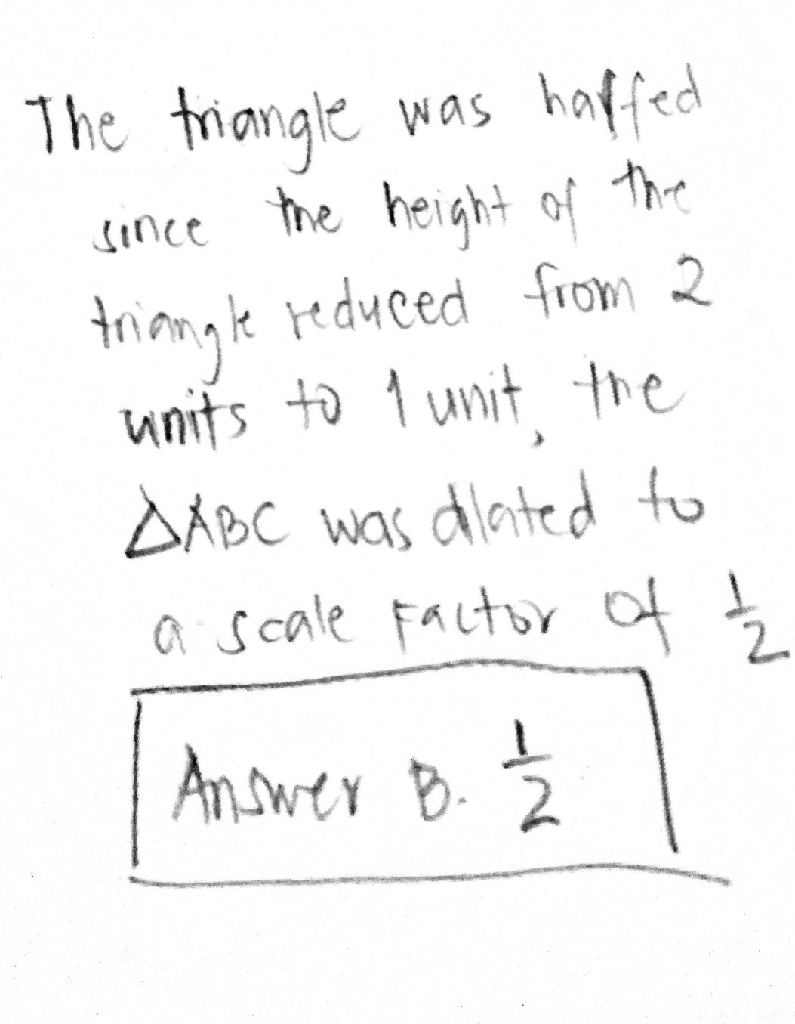 The triangle was halfed
since the height of the
triangle reduced from 2
units to 1 unit, the
△ABC was dilated to
a scale Factor of 1/2
Answer B. 1/2